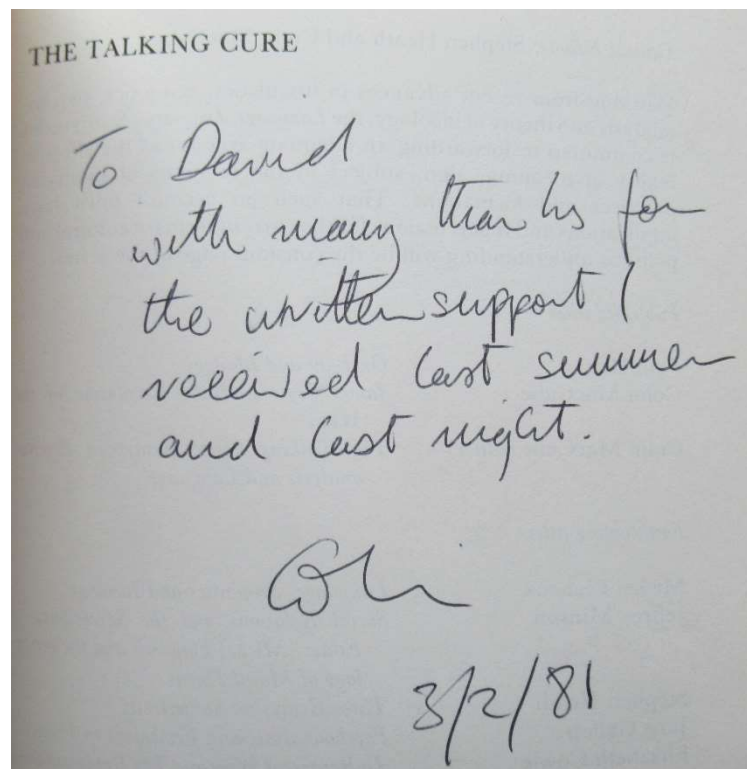 THE TALKING CURE
To David
with many thanks for
the written support I
received last summer
and last night.
Colin
3/2/81